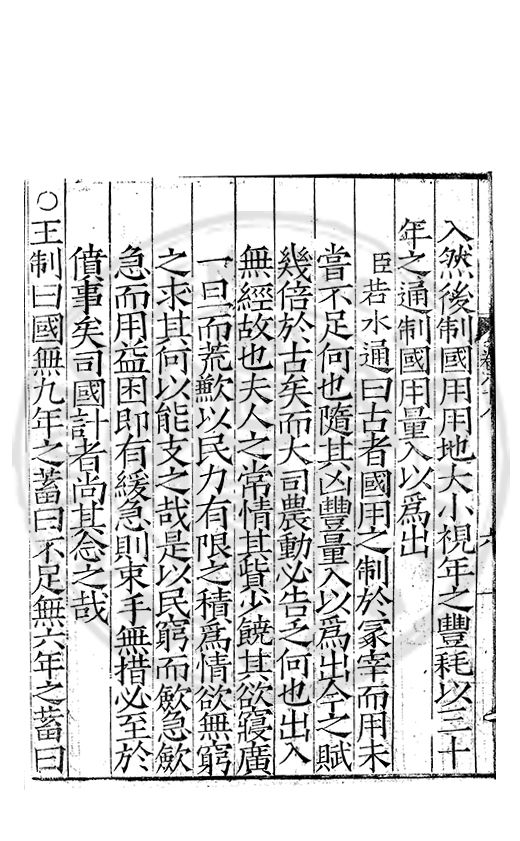 入然後制國用用地大小視年之豐耗以三十
年之通制國用量入以爲出
臣若水通曰古者國用之制於冢宰而用未
嘗不足何也隨其凶豐量入以爲出今之賦
幾倍於古矣而大司農動必告乏何也出入
無經故也夫人之常情其貲少饒其欲寢廣
一旦而荒歉以民力有限之積爲情欲無窮
之求其何以能支之哉是以民窮而歛急歛
急而用益困即有緩急則束手無措必至於
僨事矣司國計者尚其念之哉
○王制曰國無九年之蓄曰不足無六年之蓄曰